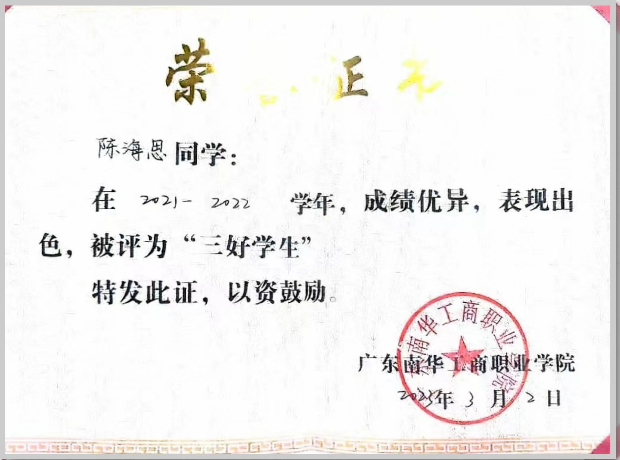 荣 证
陈海思同学：
在 2021-2022 学年，成绩优异，表现出
色，被评为“三好学生”
特发此证，以资鼓励。
广东南华工商职业学院
3月2日
东南华工商职业学院